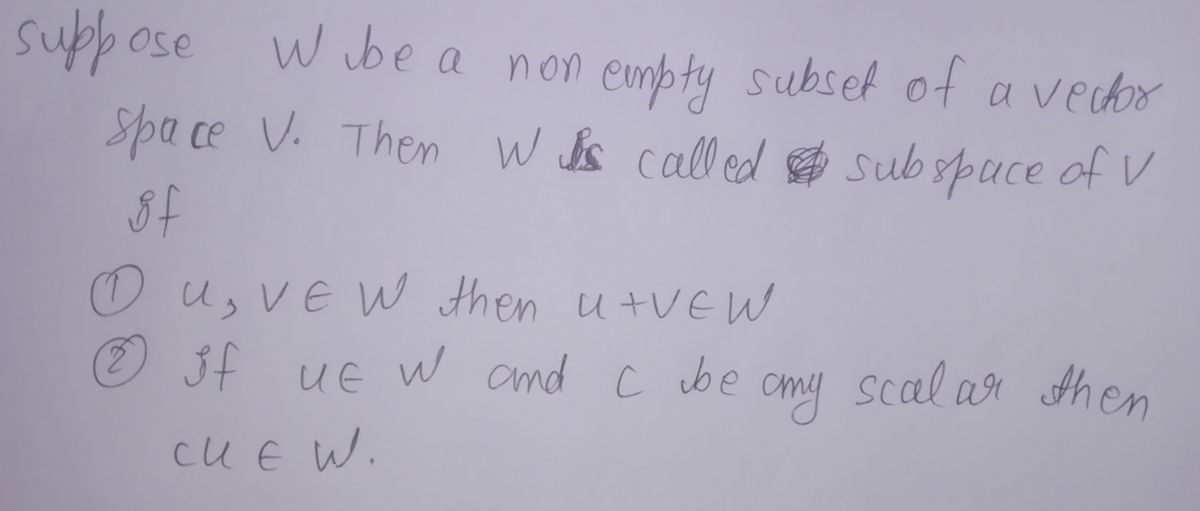 suppose W be a non empty subset of a vector
space V. Then W is called subspace of V
If
① u, v ∈ W then u + v ∈ W
② If u ∈ W and c be any scalar then
cu ∈ W.